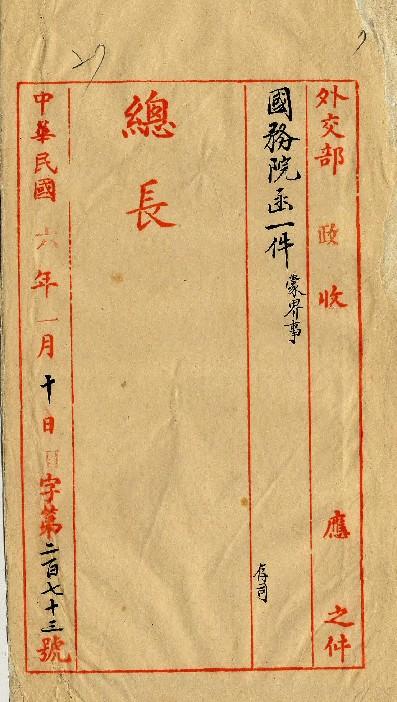 外交部 政 收 應 之件
國務院函一件 蒙界事 存司
總長
中華民國 六年 一月 十日 字第二百七十三號